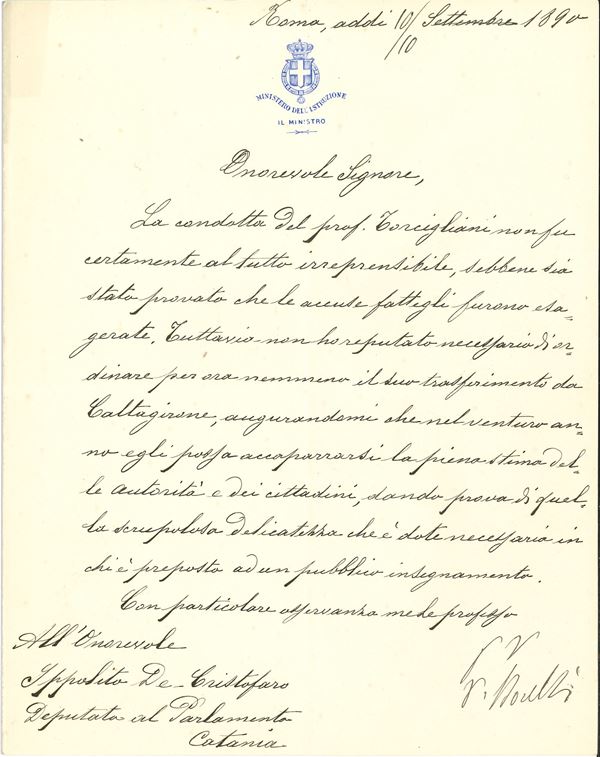 Roma, addì 10/10 Settembre 1890
MINISTERO DELL'ISTRUZIONE
IL MINISTRO
Onorevole Signore,
La condotta del prof. Torcigliani non fu
certamente al tutto irreprensibile, sebbene sia
stato provato che le accuse fattegli furono esa=
gerate. Tuttavia non ho reputato necessario di or=
dinare per ora nemmeno il suo trasferimento da
Caltagirone, augurandomi che nel venturo an=
no egli possa accaparrarsi la piena stima del=
le autorità e dei cittadini, dando prova di quel=
la scrupolosa delicatezza che è dote necessaria in
chi è preposto ad un pubblico insegnamento.
Con particolare osservanza me le professo
All'Onorevole
Ippolito De-Cristofaro
Deputato al Parlamento
Catania
P. Boselli